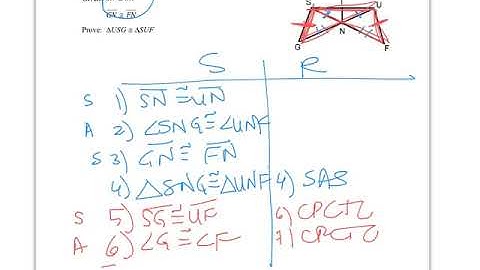 GN ≅ FN
Prove: ΔUSG ≅ ΔSUF
S U
N
G F
S R
S 1) SN ≅ UN
A 2) ∠SNG ≅ ∠UNF
S 3) GN ≅ FN
4) △SNG ≅ △UNF 4) SAS
S 5) SG ≅ UF 6) CPCTC
A 6) ∠G ≅ ∠F 7) CPCTC